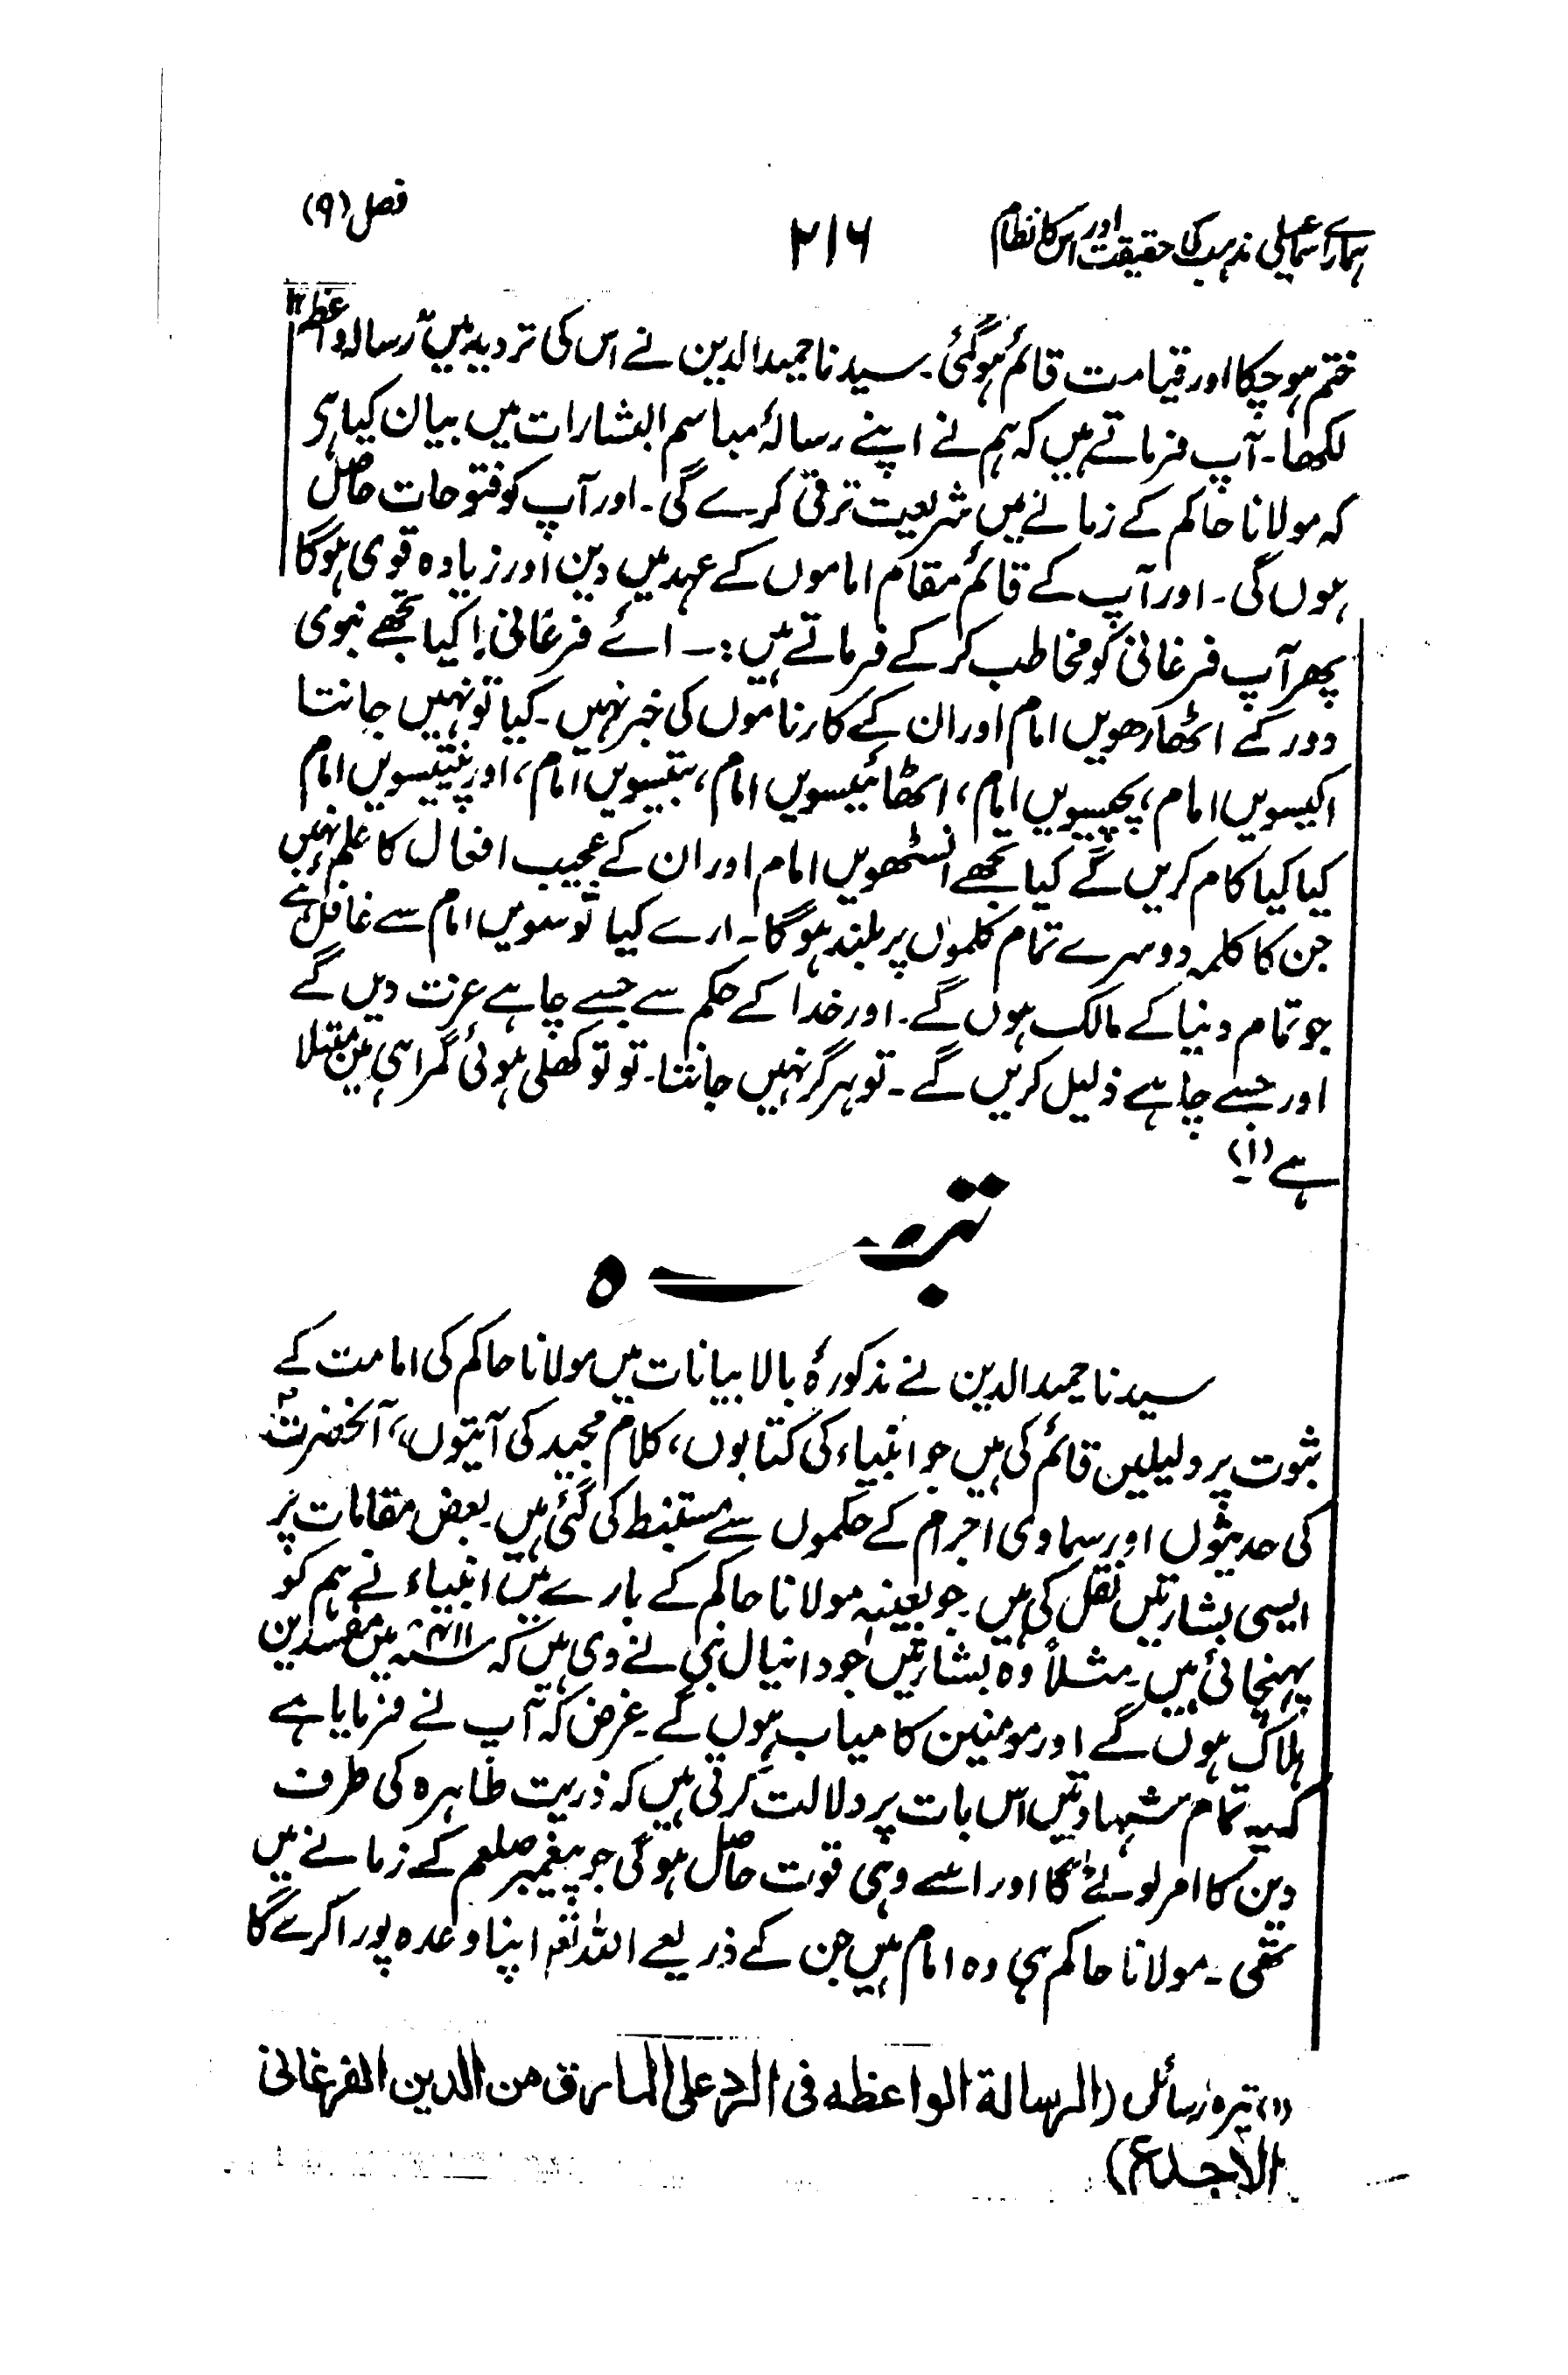 ہمارے اسماعیلی مذہب کی حقیقت اور اس کا نظام
۲۱۶
فصل (۹)
ختم ہو چکا اور قیامت قائم ہو گئی۔ سیدنا حمید الدین نے اس کی تردید میں ”رسالہ واعظہ“
لکھا۔ آپ فرماتے ہیں کہ ہم نے اپنے رسالۂ مباسم البشارات میں بیان کیا ہی
کہ مولانا حاکم کے زمانے میں شریعت ترقی کرے گی۔ اور آپ کو فتوحات حاصل
ہوں گی۔ اور آپ کے قائم مقام اماموں کے عہد میں دین اور زیادہ قوی ہوگا
پھر آپ فرغانی کو مخاطب کر کے فرماتے ہیں :۔ ائے فرغانی! کیا تجھے نبوی
دور کے اٹھارھویں امام اور ان کے کارناموں کی خبر نہیں۔ کیا تو نہیں جانتا
اکیسویں امام، پچیسویں امام، اٹھائیسویں امام، بتیسویں امام، اور پنتیسویں امام
کیا کیا کام کریں گے کیا تجھے انسٹھویں امام اور ان کے عجیب افعال کا علم نہیں
جن کا کلمہ دوسرے تمام کلموں پر بلند ہوگا۔ ارے کیا تو سویں امام سے غافل ہے
جو تمام دنیا کے مالک ہوں گے۔ اور خدا کے حکم سے جسے چاہے عزت دیں گے
اور جسے چاہے ذلیل کریں گے۔ تو ہرگز نہیں جانتا۔ تو تو کھلی ہوئی گمراہی میں مبتلا
ہے (۱)
تبصرہ
سیدنا حمید الدین نے مذکورۂ بالا بیانات میں مولانا حاکم کی امامت کے
ثبوت پر دلیلیں قائم کی ہیں جو انبیاء کی کتابوں، کلام مجید کی آیتوں، آنحضرتؐ
کی حدیثوں اور سماوی اجرام کے حکموں سے مستنبط کی گئی ہیں۔ بعض مقامات پر
ایسی بشارتیں نقل کی ہیں جو بعینہ مولانا حاکم کے بارے میں انبیاء نے ہم کو
پہنچائی ہیں۔ مثلاً وہ بشارتیں جو دانیال نبی نے دی ہیں کہ میں مفسدین
ہلاک ہوں گے اور مومنین کامیاب ہوں گے۔ غرض کہ آپ نے فرمایا ہے
کہ یہ تمام شہادتیں اس بات پر دلالت کرتی ہیں کہ ذریت طاہرہ کی طرف
دین کا امر لوٹے گا اور اسے وہی قوت حاصل ہوگی جو پیغمبر صلعم کے زمانے میں
تھی۔ مولانا حاکم ہی وہ امام ہیں جن کے ذریعے اللہ تعہ اپنا وعدہ پورا کرے گا
(۱) تیرہ رسائل (الرسالة الواعظه فی الرد علی المارق من الدین الفرغانی
الاجدع)